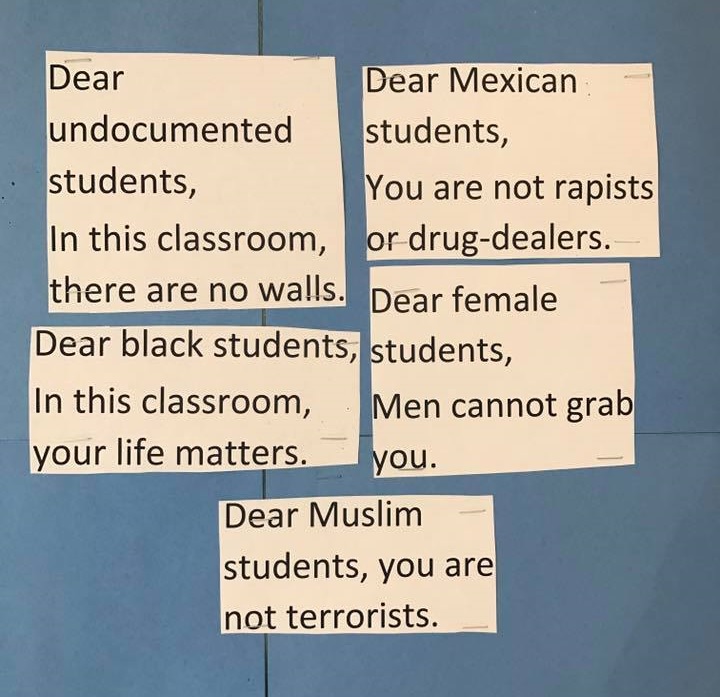 Dear
undocumented
students,
In this classroom,
there are no walls.
Dear Mexican
students,
You are not rapists
or drug-dealers.
Dear black students,
In this classroom,
your life matters.
Dear female
students,
Men cannot grab
you.
Dear Muslim
students, you are
not terrorists.